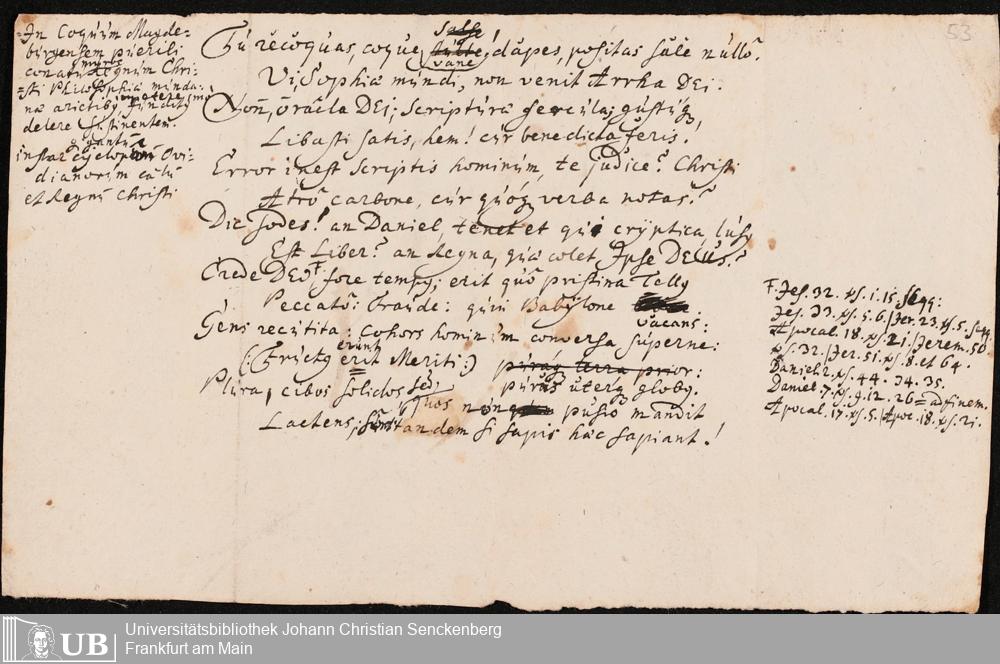 53
In Coquum Magde-
burgensem puerili
conatu Regnum Chri-
sti Philosophiæ munda-
næ arietibq funditus
delere
instar Cyclopum Ovi-
dianorum cœlū
et Regnū Christi
salse
Tu recoquas, coque, vane! dapes, positas sale nullo?
Vi, Sophiæ mundi, non venit Arrha DEI.
Non, oracla DEI; Scripturæ fercula; gustu,
Libasti satis, hem! cur benedicta feris.
Error inest scriptis hominum, te judice? Christi
Atro carbone, cur quoq verba notas?
Dic sodes! an Daniel, tenet et qui cryptica, lusq
Est Liber? an Regna, quæ colet, Ipse DEUS?
Crede DEO F fore tempq; erit quo pristina Tellq
Peccato: fraude: quin Babylone vacans:
Gens recutita: Cohors hominum conversa superne:
(: Fructq erunt Meriti:) puraq terra prior:
Plura, cibos solidos sed, purus uterq globq.
quos pusio mandit
Lactens, an dem si sapis hæc sapiant!
F. Jes. 32. vs. 1. 15. seqq:
Jes. 33. vs. 5. 6. /Jer. 23. vs. 5. seqq
Apocal. 18. vs. 21. /Jerem. 50
vs. 32. /Jer. 51. vs. 8. et 64.
Daniel 2. vs. 44. 34. 35.
Daniel 7. vs. 9. 12. 26 = ad finem.
Apocal. 17. vs. 5. /Apoc. 18. vs. 21.
UB
Universitätsbibliothek Johann Christian Senckenberg
Frankfurt am Main